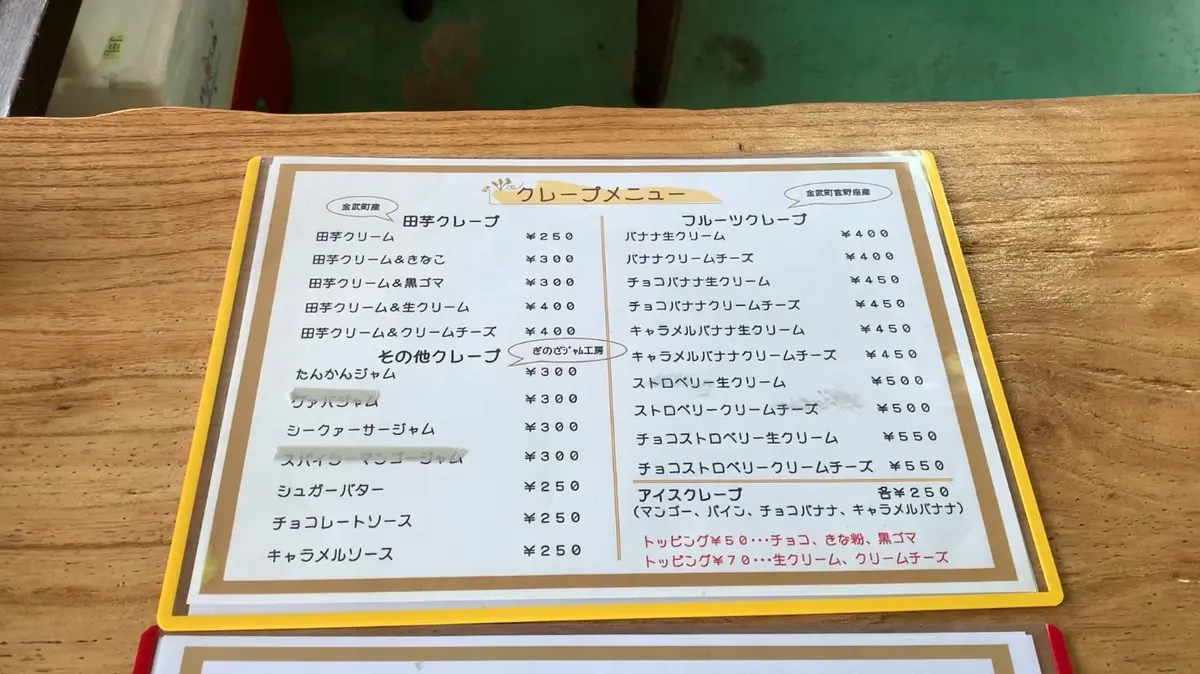 クレープメニュー
金武町産
田芋クレープ
田芋クリーム ¥250
田芋クリーム&きなこ ¥300
田芋クリーム&黒ゴマ ¥300
田芋クリーム&生クリーム ¥400
田芋クリーム&クリームチーズ ¥400
その他クレープ
ぎのざジャム工房
たんかんジャム ¥300
グァバジャム ¥300
シークァーサージャム ¥300
スパイシーマンゴージャム ¥300
シュガーバター ¥250
チョコレートソース ¥250
キャラメルソース ¥250
金武町宜野座産
フルーツクレープ
バナナ生クリーム ¥400
バナナクリームチーズ ¥400
チョコバナナ生クリーム ¥450
チョコバナナクリームチーズ ¥450
キャラメルバナナ生クリーム ¥450
キャラメルバナナクリームチーズ ¥450
ストロベリー生クリーム ¥500
ストロベリークリームチーズ ¥500
チョコストロベリー生クリーム ¥550
チョコストロベリークリームチーズ ¥550
アイスクレープ 各¥250
(マンゴー、パイン、チョコバナナ、キャラメルバナナ)
トッピング¥50…チョコ、きな粉、黒ゴマ
トッピング¥70…生クリーム、クリームチーズ